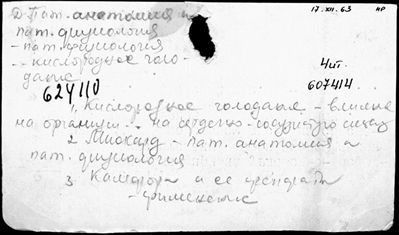 2 Пат. анатомия и
17.XII.63 НР
пат. физиология
- пат. физиология
- кислородное голо-
дание
Чит.
624110
607414
1. Кислородное голодание - влияние
на организм .. на сердечно-сосудистую
2 Миокард - пат. анатомия и
пат. физиология
3. Камфора и ее препараты
- применение